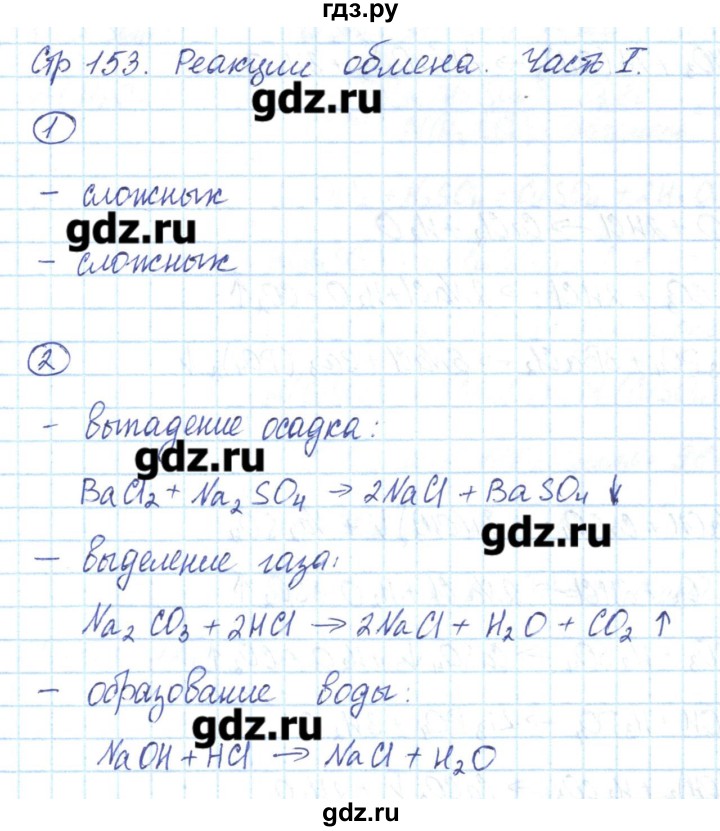 гдз.ру
Стр 153. Реакции обмена. Часть I.
gdz.ru
1
- сложных
gdz.ru
- сложных
2
- выпадение осадка:
gdz.ru
BaCl₂ + Na₂SO₄ → 2NaCl + BaSO₄ ↓
gdz.ru
- выделение газа:
Na₂CO₃ + 2HCl → 2NaCl + H₂O + CO₂ ↑
- образование воды:
gdz.ru
NaOH + HCl → NaCl + H₂O
gdz.ru